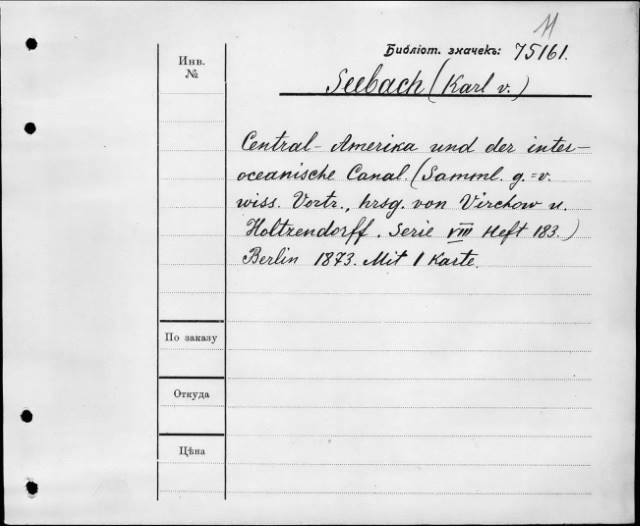 11
Библіот. значекъ: 75161.
Инв.
№
Seebach (Karl v.)
Central-Amerika und der inter-
oceanische Canal. (Samml. g.=v.
wiss. Vortr., hrsg. von Virchow u.
Holtzendorff. Serie VIII Heft 183.)
Berlin 1873. Mit 1 Karte.
По заказу
Откуда
Цѣна